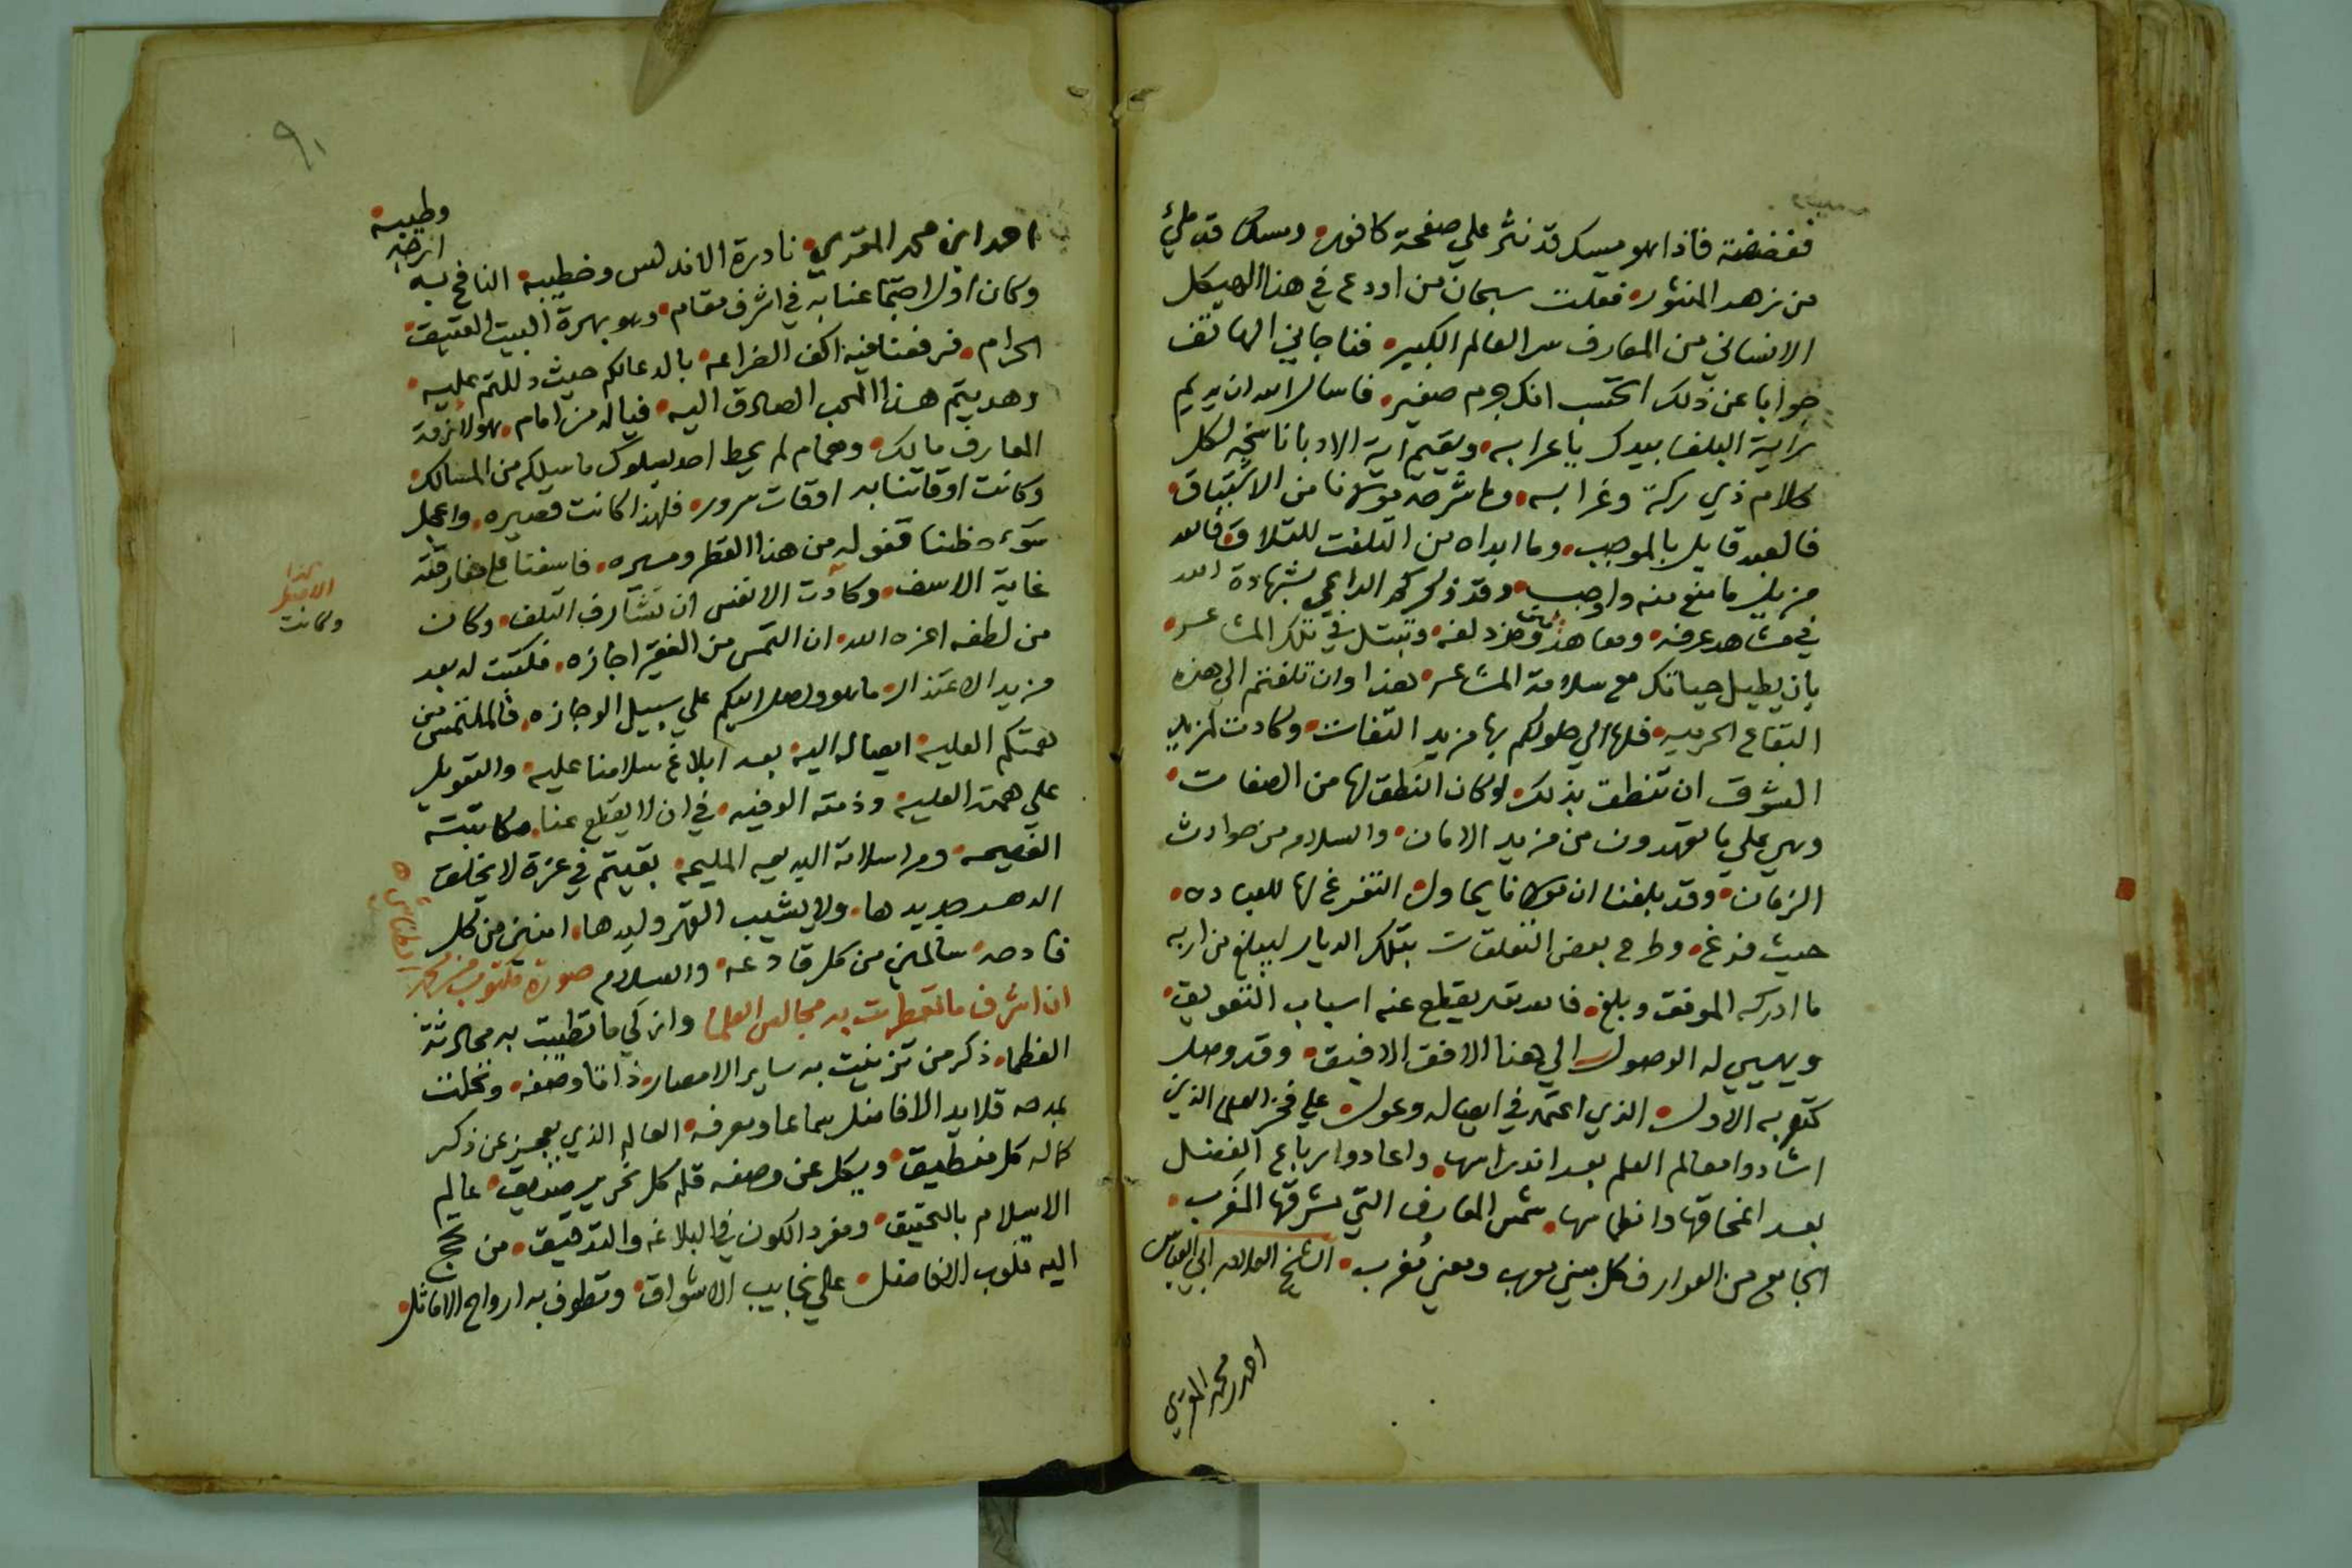 ففضضته فاذا هو مسك قد نثر علي صفحة كافور وسلك قد ملئ
من زهر المنثور فقلت سبحان من اودع في هذا الهيكل
الانساني من المعارف سر العالم الكبير فناجاني الهاتف
جوابا عن ذلك اتحسب انك جرم صغير فاسال الله ان يديم
راية البلغا بيدك باعرابه ويقيم اية الادبا ناسخة لكل
كلام ذي ركة وغرابه وما شرحه مولانا من الاشتياق
فالعبد قايل بالموجب وما ابداه من التلفت للتلاق فالله
مزيل ما منع منه واوجب وقد ذكركم الداعي بشهادة الله
في مشاهد عرفه ومعاهد مزدلفه وتبتل في تلك المشاعر
بان يطيل حياتك مع سلامة المشاعر هذا وان تلفتم الي هذه
البقاع الحرميه فلها الي حلولكم بها مزيد التفات وكادت لمزيد
الشوق ان تنطق بذلك لو كان النطق لها من الصفات
وهي علي ما تعهدون من مزيد الامان والسلام من حوادث
الزمان وقد بلغنا ان مولانا يحاول التفرغ لها للعباده
حيث فرغ وطرح بعض التعلقات بتلك الديار ليبلغ من اربه
ما ادركه الموفق وبلغ فالله يقطع عنه اسباب التعويق
ويهيي له الوصول الي هذا الافق الافيق وقد وصل
كتوبه الاول الذي اعتمد في ايصاله وعول علي فخر العلما الذين
اشادوا معالم العلم بعد اندراسها واعادوا رباع الفضل
بعد انمحاقها وانطماسها شمس المعارف التي مشرقها المغرب
الجامع من العوارف كل مبني معرب ومعني مغرب الشيخ العلامه ابي العباس
احمد محمد المقري
٩١
احمد ابن محمد المقري نادرة الاندلس وخطيبه النافح به
وطيبه
ازخر
وكان اول اجتماعنا به في اشرف مقام وهو بهرة البيت العتيق
الحرام فرفعنا فيه اكف الضراعه بالدعا لكم حيث دللتم عليه
وهديتم هذا المحب الصادق اليه فياله من امام هو لازمة
المعارف مالك وهمام لم يحط احد بسلوك ما سلكه من المسالك
وكانت اوقاتنا به اوقات سرور فلهذا كانت قصيره واعجل
سوء حظنا قفوله من هذا القطر ومسيره فاسفنا علي مفارقته
غاية الاسف وكادت الانفس ان تشارف التلف وكان
هذا
الاصل
وكانت
من لطفه اعزه الله ان التمس من الفقير اجازه فكتبت له بعد
مزيد الاعتذار ما هو واصل اليكم علي سبيل الوجازه فالملتمس من
همتكم العليه ايصاله اليه بعد ابلاغ سلامنا عليه والتعويل
علي همته العليه وذمته الوفيه في ان لا يقطع عنا مكاتبته
الفصيحه ومراسلاته البديعه المليحه بقيتم في عزة لا يخلق
الدهر جديدها ولا يشيب القهر وليدها امنين من كل
فادحه سالمين من كل قادعه والسلام صورة مكتوب من محمد
ان اشرف ما تعطرت به مجالس العلما وازكي ما تطيبت به محادثة
العظما ذكر من تزينت به ساير الامصار ذاتا وصفه وتحلت
بمدحه قلايد الافاضل سماعا ومعرفه العالم الذي يعجز عن ذكر
كماله كل منطيق ويكل عن وصفه قلم كل نحرير صديق عالم
الاسلام بالتحقيق ومفرد الكون في البلاغه والتدقيق من تحج
اليه قلوب الافاضل علي نجايب الاشواق وتطوف به ارواح الاماثل